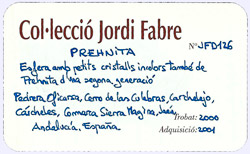 Col·lecció Jordi Fabre
PREHNITA
Nº JFD126
Esfera amb petits cristalls incolors també de
Prehnita d'una segona generació
Pedrera Oficarsa, Cerro de las Culebras, Carchelejo,
Cárcheles, Comarca Sierra Magina, Jaén,
Andalucía, España
Trobat: 2000
Adquisició: 2001